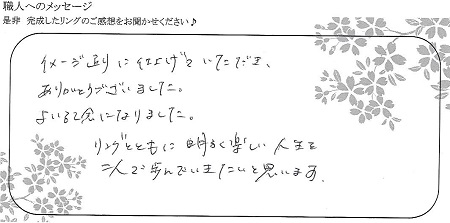 職人へのメッセージ
是非 完成したリングのご感想をお聞かせください♪
イメージ通りに仕上げていただき、
ありがとうございました。
よい記念になりました。
リングとともに明るく楽しい人生を
二人で歩んでいきたいと思います。